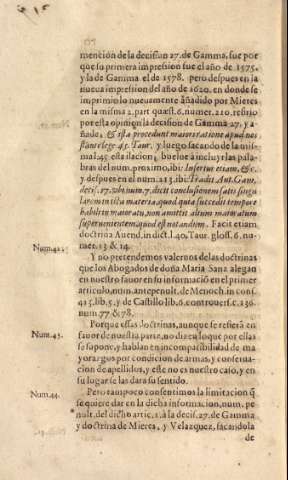 mencion de la decision 27. de Gamma, fue por
que su primera impression fue el año de 1575.
y la de Gamma el de 1578. pero despues en la
nueva impression del año de 1620. en donde se
imprimio lo nuevamente añadido por Mieres
en la misma 2. part. quæst. 6. numer. 210. refirio
por esta opinion la decision de Gamma 27. y a-
ñade, & ista procedunt maiori ratione apud nos
stante lege 45. Taur. y luego sacando de la mis-
ma l. 45. esta ilacion, buelve à incluyr las pala-
bras del num. proximo, ibi: Insertur etiam, &c.
y despues en el num. 213. ibi: Tradit Ant. Gam.
decis. 27. vbi num. 7. dicit conclusionem satis singu
larem in ista materia, quod quia succedit tempore
habili in maioratu, non amittit alium maioratum
supervenientem quod est notandum. Facit etiam
doctrina Avend. in dict. l. 40. Taur. gloss. 6. nu-
mer. 13. & 14.
Num. 42. Y no pretendemos valernos de las doctrinas
que los Abogados de doña Maria Sana alegan
en nuestro favor en su informacion en el primer
articulo, num. antepenult. de Menoch. in cons.
415. lib. 5. y de Castillo lib. 6. controvers. c. 136.
num. 77. & 78.
Num. 43. Porque estas doctrinas, aunque se refieran en
favor de nuestra parte, no dizen lo que por ellas
se supone, y hablan en incompatibilidad de ma
yorazgos por condicion de armas, y conserva-
cion de apellidos, y este no es nuestro caso, y en
su lugar se las dara su sentido.
Num. 44. Pero tampoco consentimos la limitacion q̃
se quiere dar en la dicha informacion, num. pe-
nult. del dicho artic. 1. à la decis. 27. de Gamma
y doctrina de Mieres, y Velazquez, sacandola
de